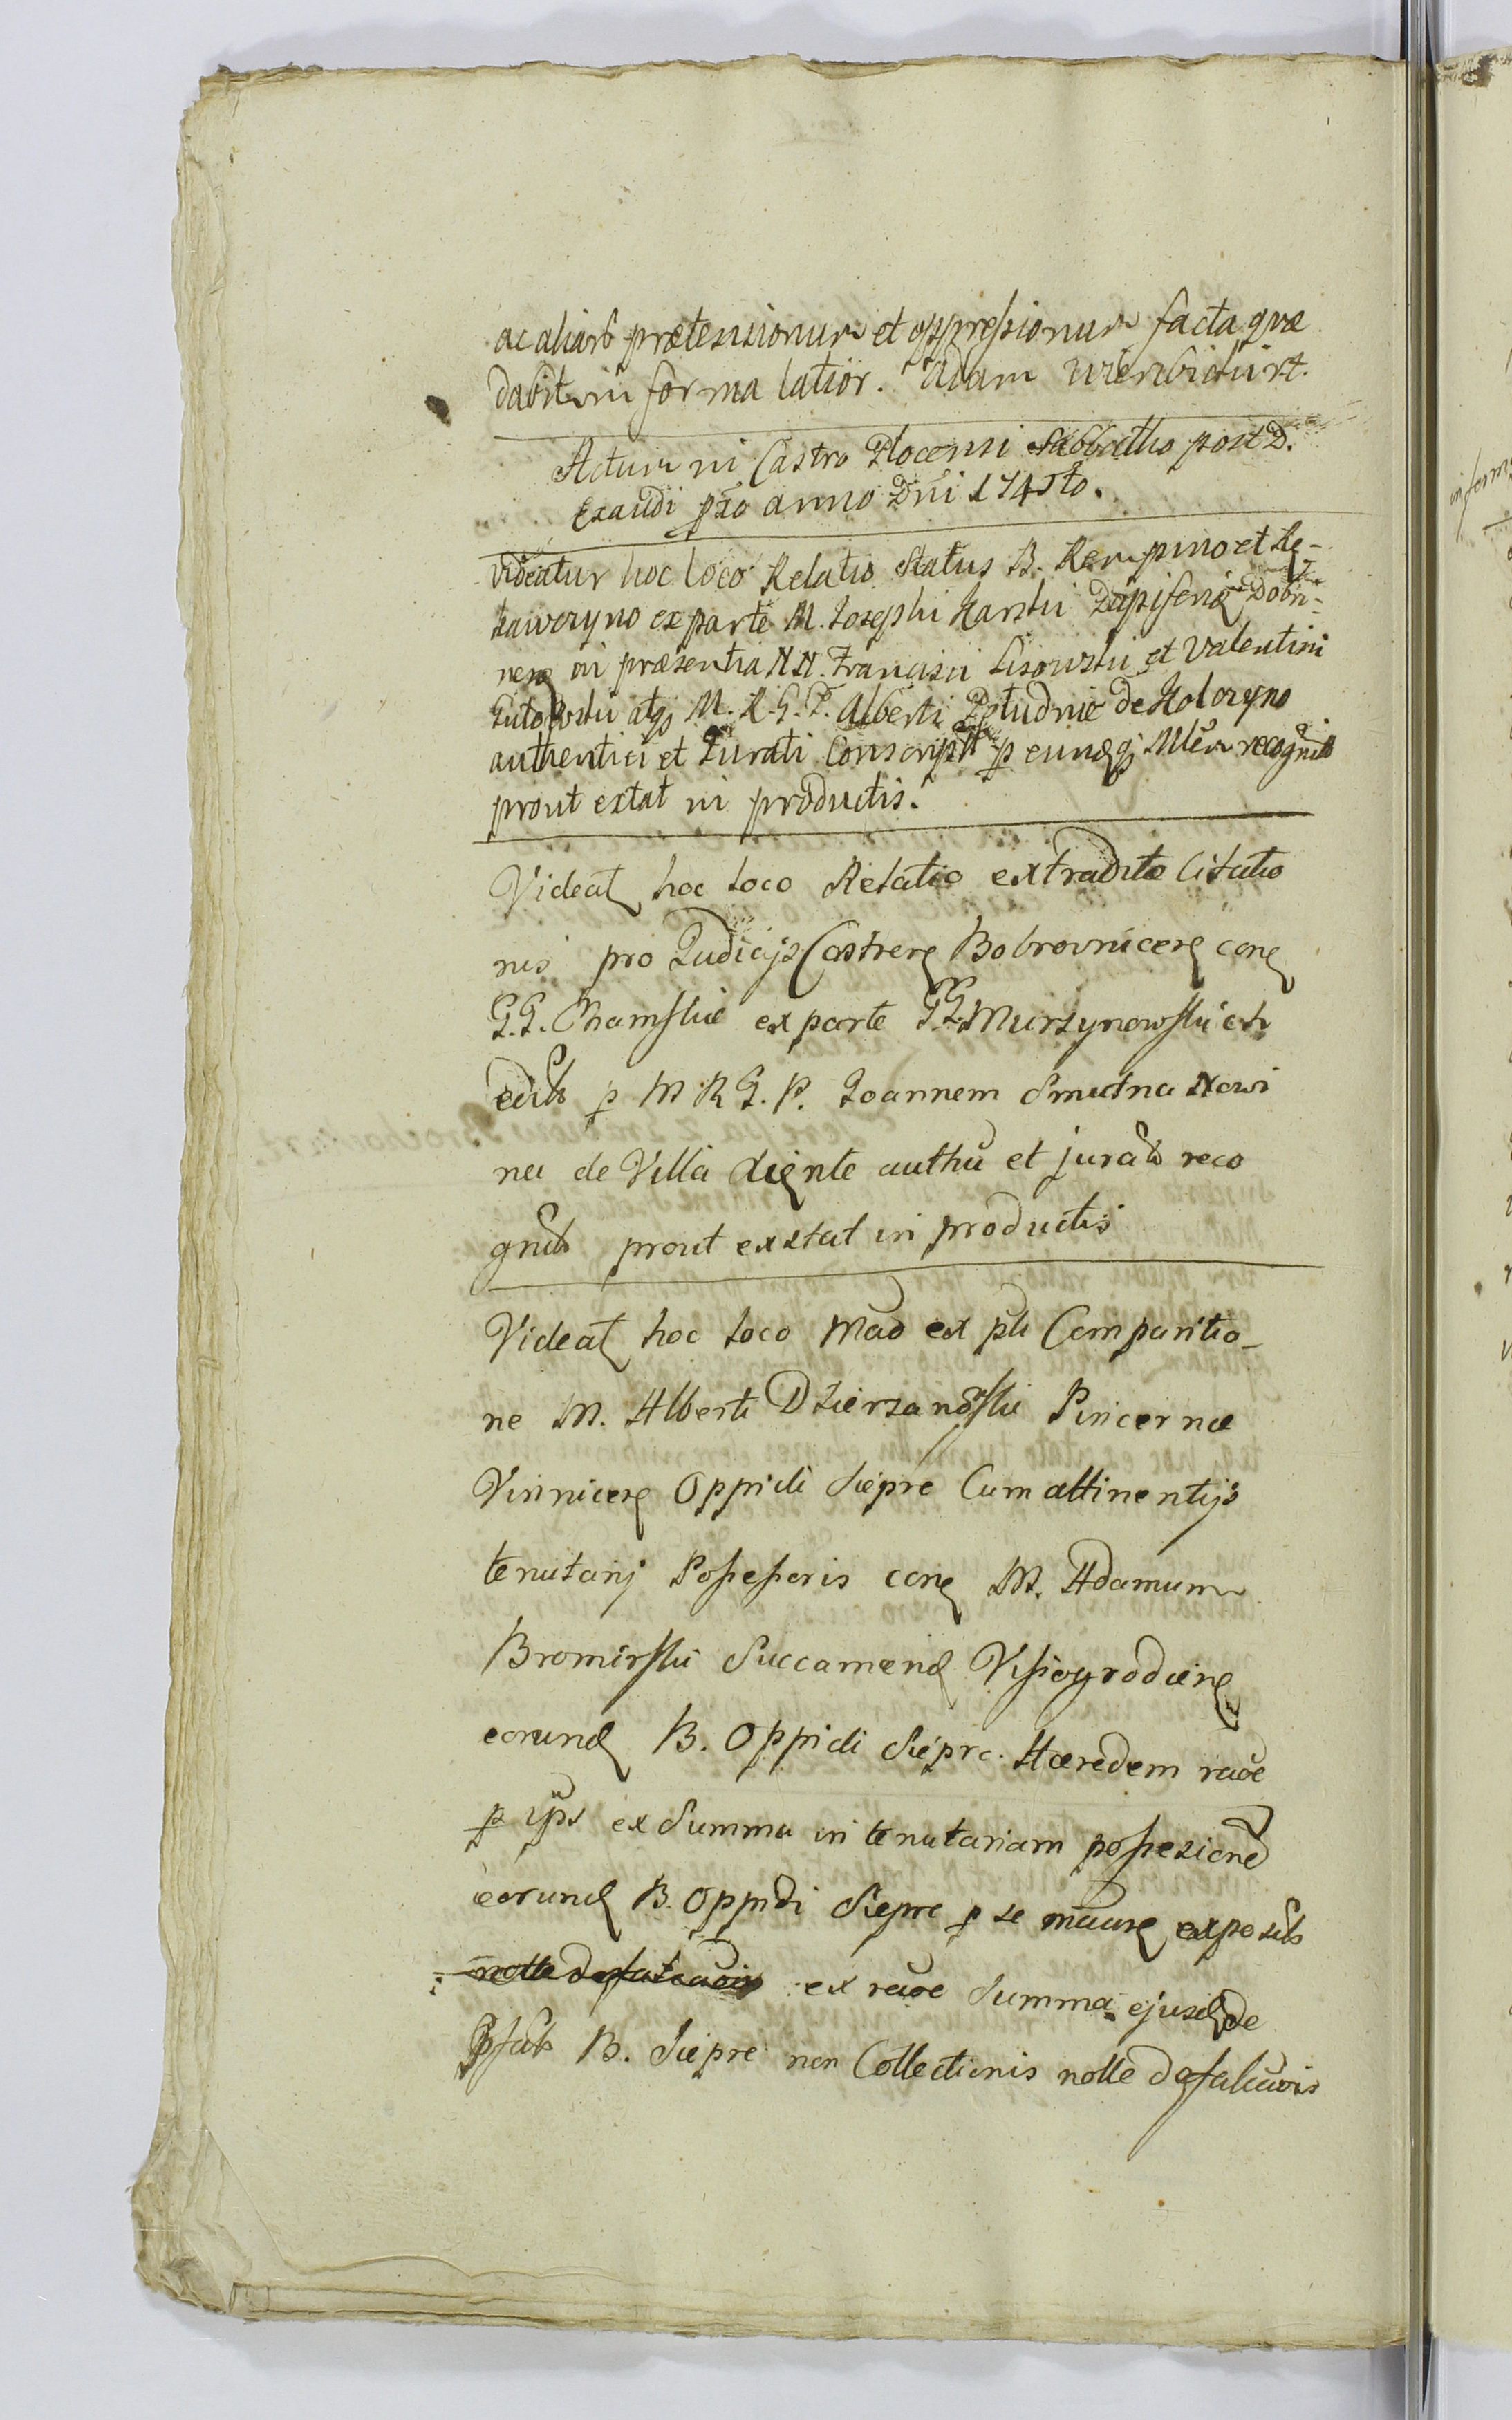 ac aliarū prætensionum et oppressionum facta quæ
dabit in forma latior. Adam
Actum in Castro Plocensi Sabbatho post D.
Exaudi pxo anno Dni 1745to.
Videatur hoc loco Relatio Status B. Rempino et Re-
kawczyno ex parte M. Josephi Karski Dapiferi Dobri-
nens in præsentia N.N. Francisci Lisowski et Valentini
atq M. R. G. P. Alberti Południe de Kołozyno
authentici et Jurati Conscript p eundq Mlem recognit
prout extat in productis.
Videat hoc loco Relatio extraditæ Citatio
nis pro Judicijs Castren Bobrovnicen con
G.G. Chamskie ex parte G.G. Murzynowskich
edit p M R G. P. Joannem Smutna Nowi
na de Villa Ligente authci et jurat reco
gnit prout exstat in productis
Videat hoc loco Mao ex pti Comparitio-
ne M. Alberti Dzierzanowski Pincernæ
Vinnicen Oppidi Siepre Cum attinentijs
tenutarij Possessoris con M. Adamum
Bromirski Succamend Vissogrodien
eorund B. Oppidi Siepre. Hæredem raoe
p ips ex Summa in tenutariam possesione
eorund B. Oppidi Siepre p se exposit
nolle defalcaois ex raoe Summa ejusd de
Pfat B. Siepre non Collectionis nolle defalcaois